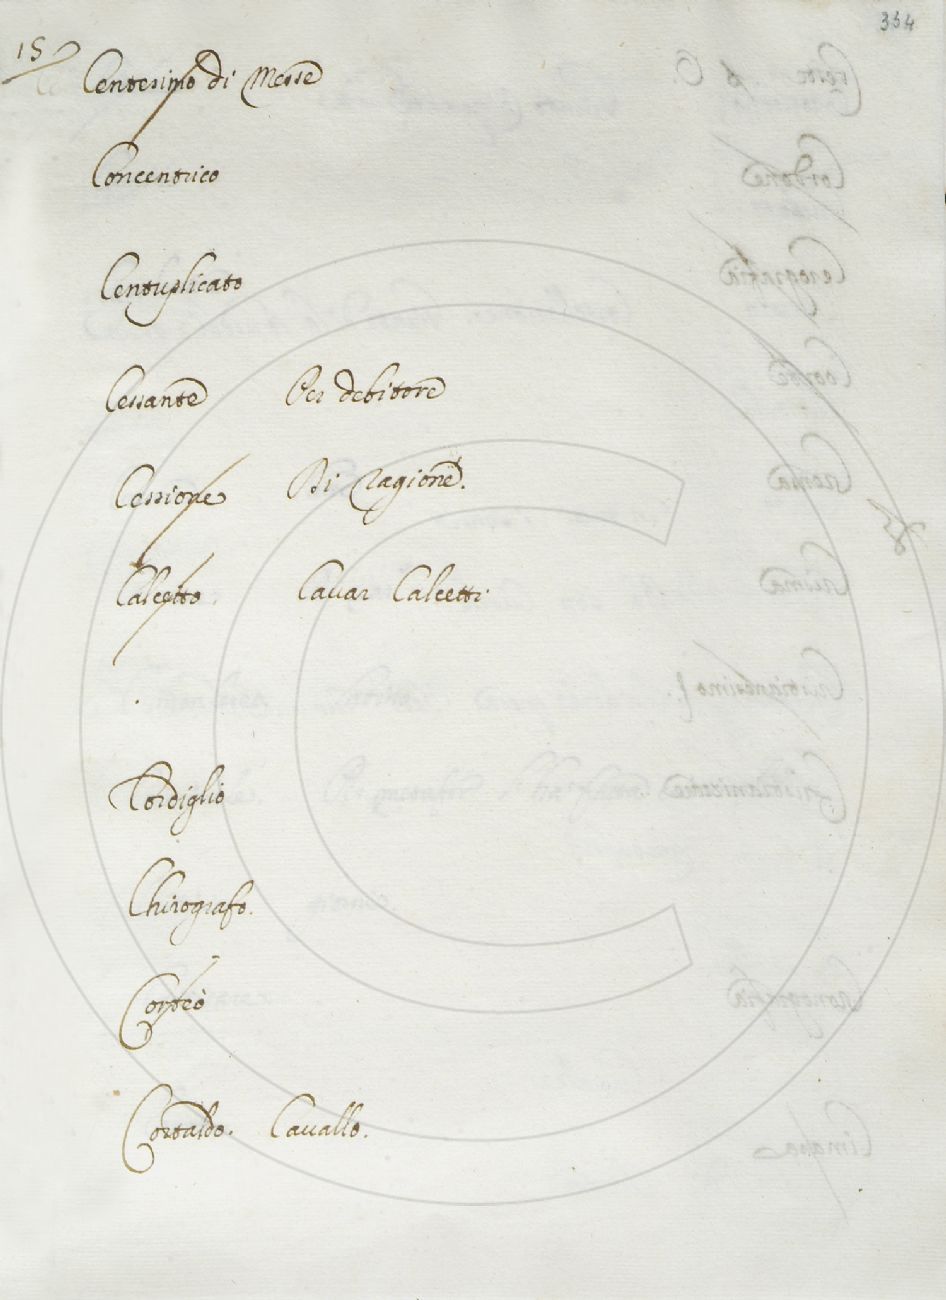 334
15
Centesimo di Messe
Concentrico
Centuplicato
Cessante Per debitore
Cessione Di ragione.
Calcetto. Cavar Calcetti.
Cordiglio
Chirografo.
Corteo
Cortaldo. Cavallo.